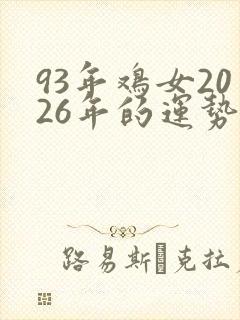 93年鸡女20
26年的運势
路易斯·克拉